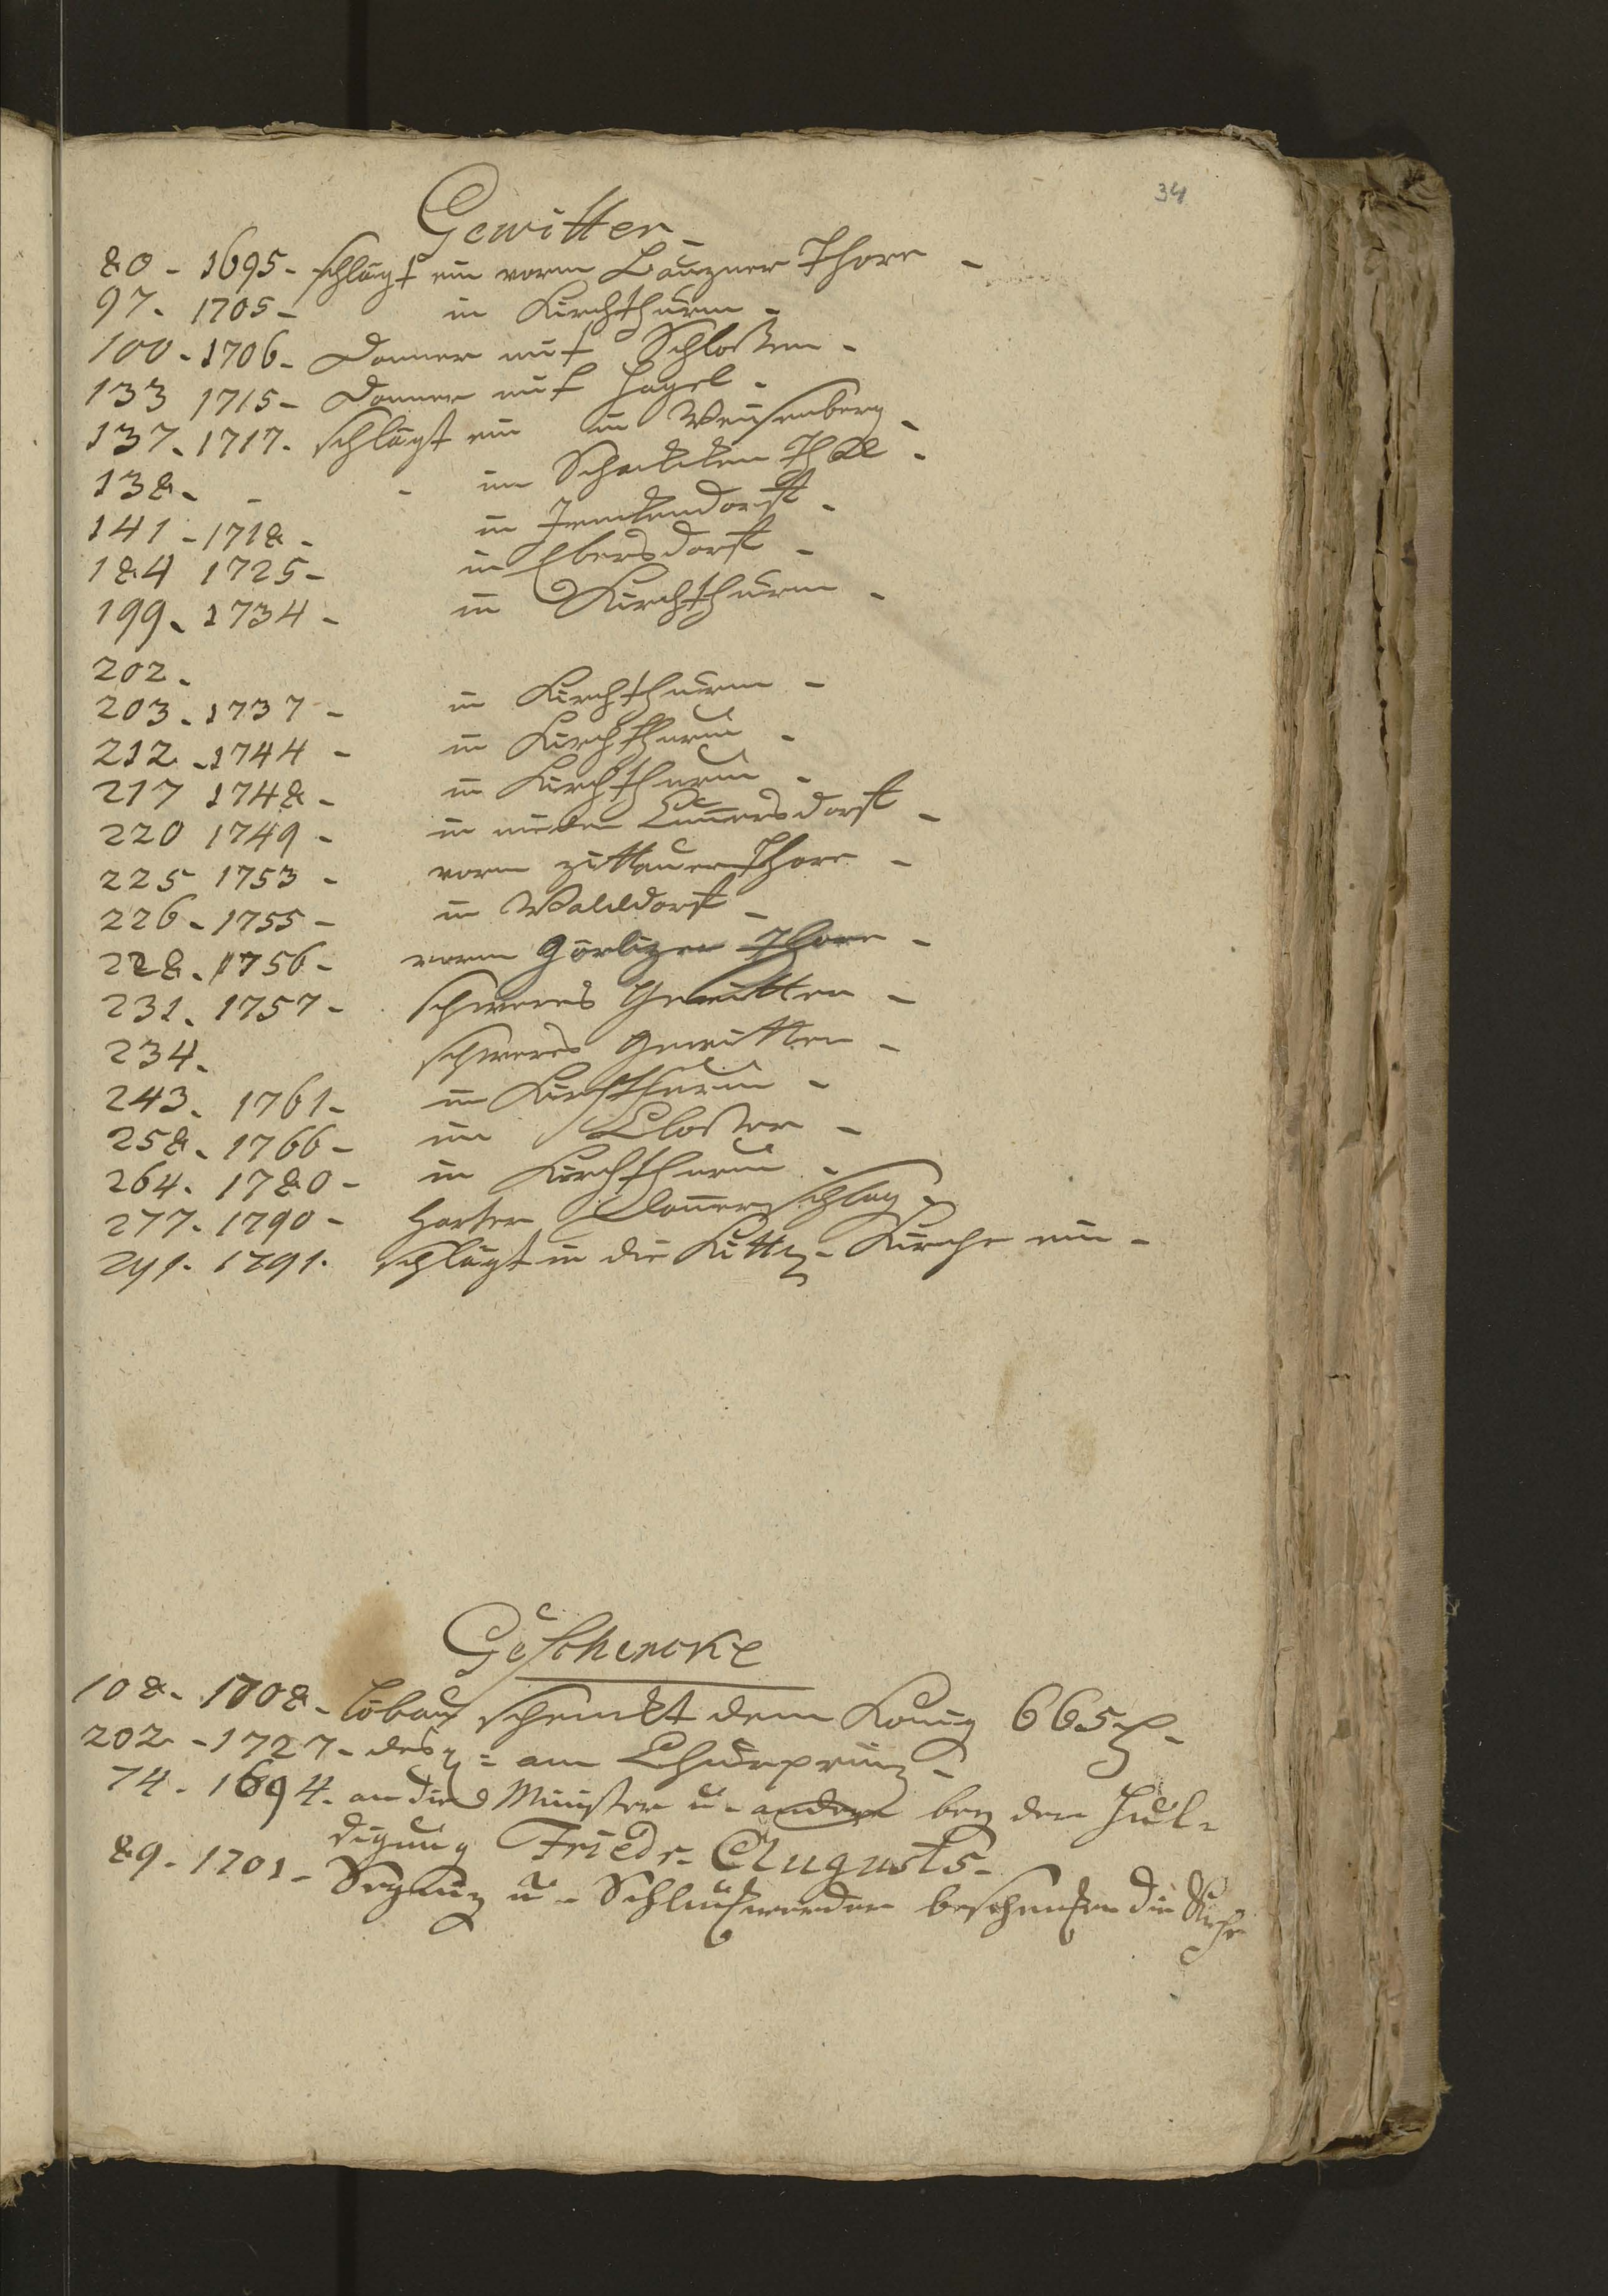 34
Gewitter -
80 - 1695 - schlägt ein vorm Bauzner Thore -
97. 1705 - in Kirchthurm -
100 - 1706 - Donner mit Schloßen -
133 1715 - Donner mit Hagel -
137. 1717. schlägt ein in Weissenberg -
138. - - im
141 - 1718 - in
184 1725 - in Ebersdorff -
199. 1734 - in Kirchthurm -
202.
203. 1737 - in Kirchthurm -
212. 1744 - in Kirchthurm -
217 1748 - in Kirchthurm -
220 1749 - in nieder Cunnersdorff -
225 1753 - vorm zittauer Thore -
226 - 1755 - in Walddorff -
228. 1756 - vorm Görlizer Thore -
231. 1757 - schweres Gewitter -
234. schweres Gewitter -
243. 1761 - in Kirchthurm -
258. 1766 - im Closter -
264. 1780 - in Kirchthurm -
277. 1790 - harter Donnerschlag -
291. 1791. schlägt in die Kittl. Kirche ein -
Geschencke
108 - 1708 - Löbau schenckt dem König 665
202 - 1727 - desgl: am Churprinz -
74. 1694. an die Minister u. andere bey der Hul-
digung Friedr. Augusts -
89. 1701 - u - beschencken die Kirche